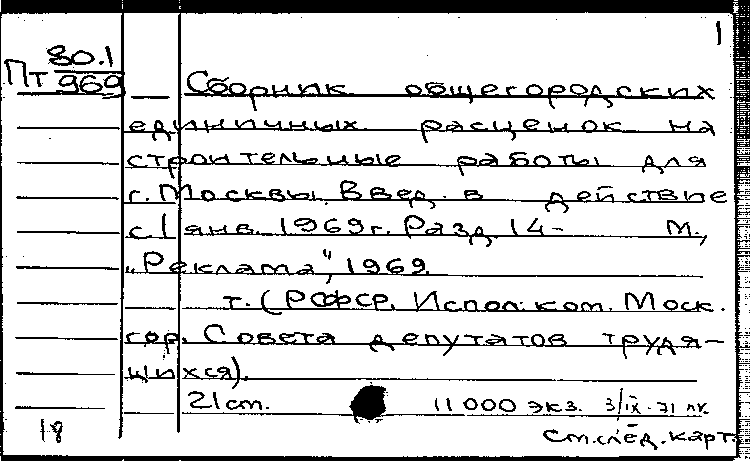 1
80.1
Пт 969
Сборник общегородских
единичных расценок на
строительные работы для
г. Москвы. Введ. в действие
с 1 янв. 1969 г. Разд. 14 - М.,
"Реклама", 1969.
т. (РСФСР. Испол. ком. Моск.
гор. Совета депутатов трудя-
щихся).
21 см. 11 000 экз. 3/IX-71 лк.
18 см. след. карт.